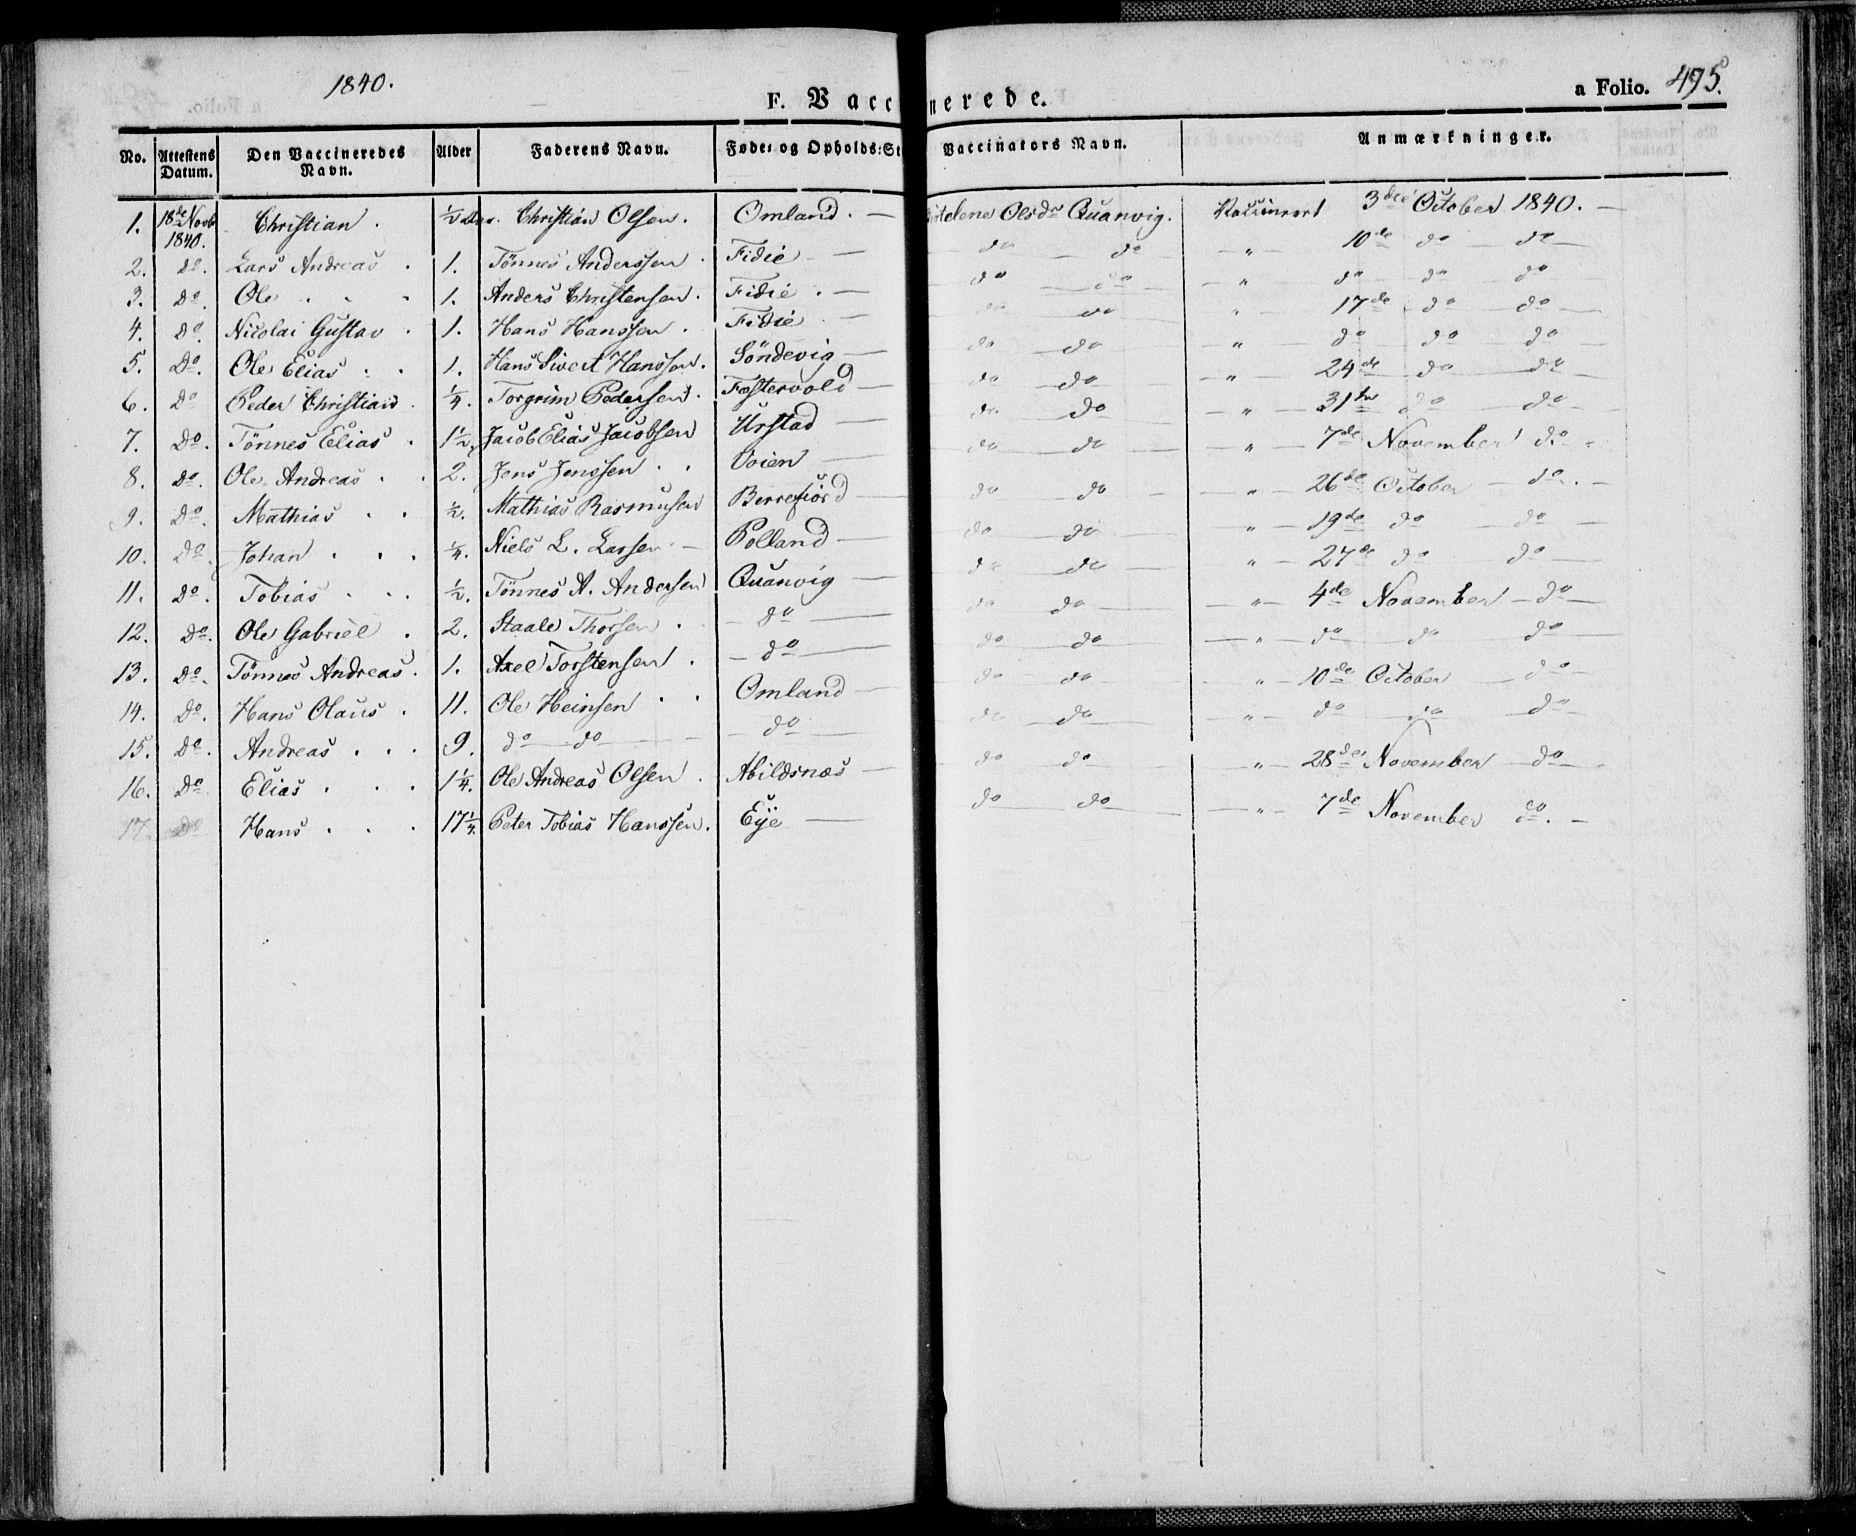 1840.
F. Vaccinerede.
a Folio. 495.
No. Attestens Datum. Den Vaccineredes Navn. Alder Faderens Navn. Føde- og Opholds-St Vaccinators Navn. Anmærkninger.
1. 18de Novbr 1840. Christian. 1/2 Christian Olsen. Omland. — Olsdr Quanvig. Vaccineert 3die October 1840. —
2. do. Lars Andreas . 1. Tönnes Anderssen . Fidie — do do " 10de do do
3. do. Ole . . . 1. Anders Christensen . Fidie . — do do " do do do
4. do. Nicolai Gustav . 1. Hans Hanssen . Fidie — do do " 17de do do
5. Do. Ole Elias . . 1. Hans Sivert Hanssen. Söndevig — do do " do do do
6. Do Peder Christian . 1/4. Torgrim Pedersen . Fæstervold — do do " 24de do do
7. Do. Tönnes Elias . 1 1/2 Jacob Elias Jacobsen Urstad — do do " 31te do do
8. do. Ole Andreas . . 2. Jens Jenssen . . Voien — do do " 7de November do. -
9. do. Mathias . . 1/2. Mathias Rasmusen Berrefiörd — do do " 26de October — do. —
10. do. Johan . . . 1/4. Niels L. Larsen — Polland — do do " 19de do do
11. do. Tobias . . . 1/2. Tönnes A. Andersen Quanvig — do do " 27de do do
12. do. Ole Gabriel . 2. Staale Thorsen . — do — do do " 4de November — do —
13. do. Tönnes Andreas . 1. Axel Torstensen . — do — do do " do do do
14. do. Hans Olaus . 11. Ole Heinsen . . Omland — do do " 10de October do
15. do. Andreas . . . 9. do do — do — do do " do do do
16. do. Elias . . . 1 1/4. Ole Andreas Olsen . Abildsnæs — do do " 28de November do
17. do Hans . . . 17 1/4. Peter Tobias Hanssen . Eye — do do " 7de November do. —